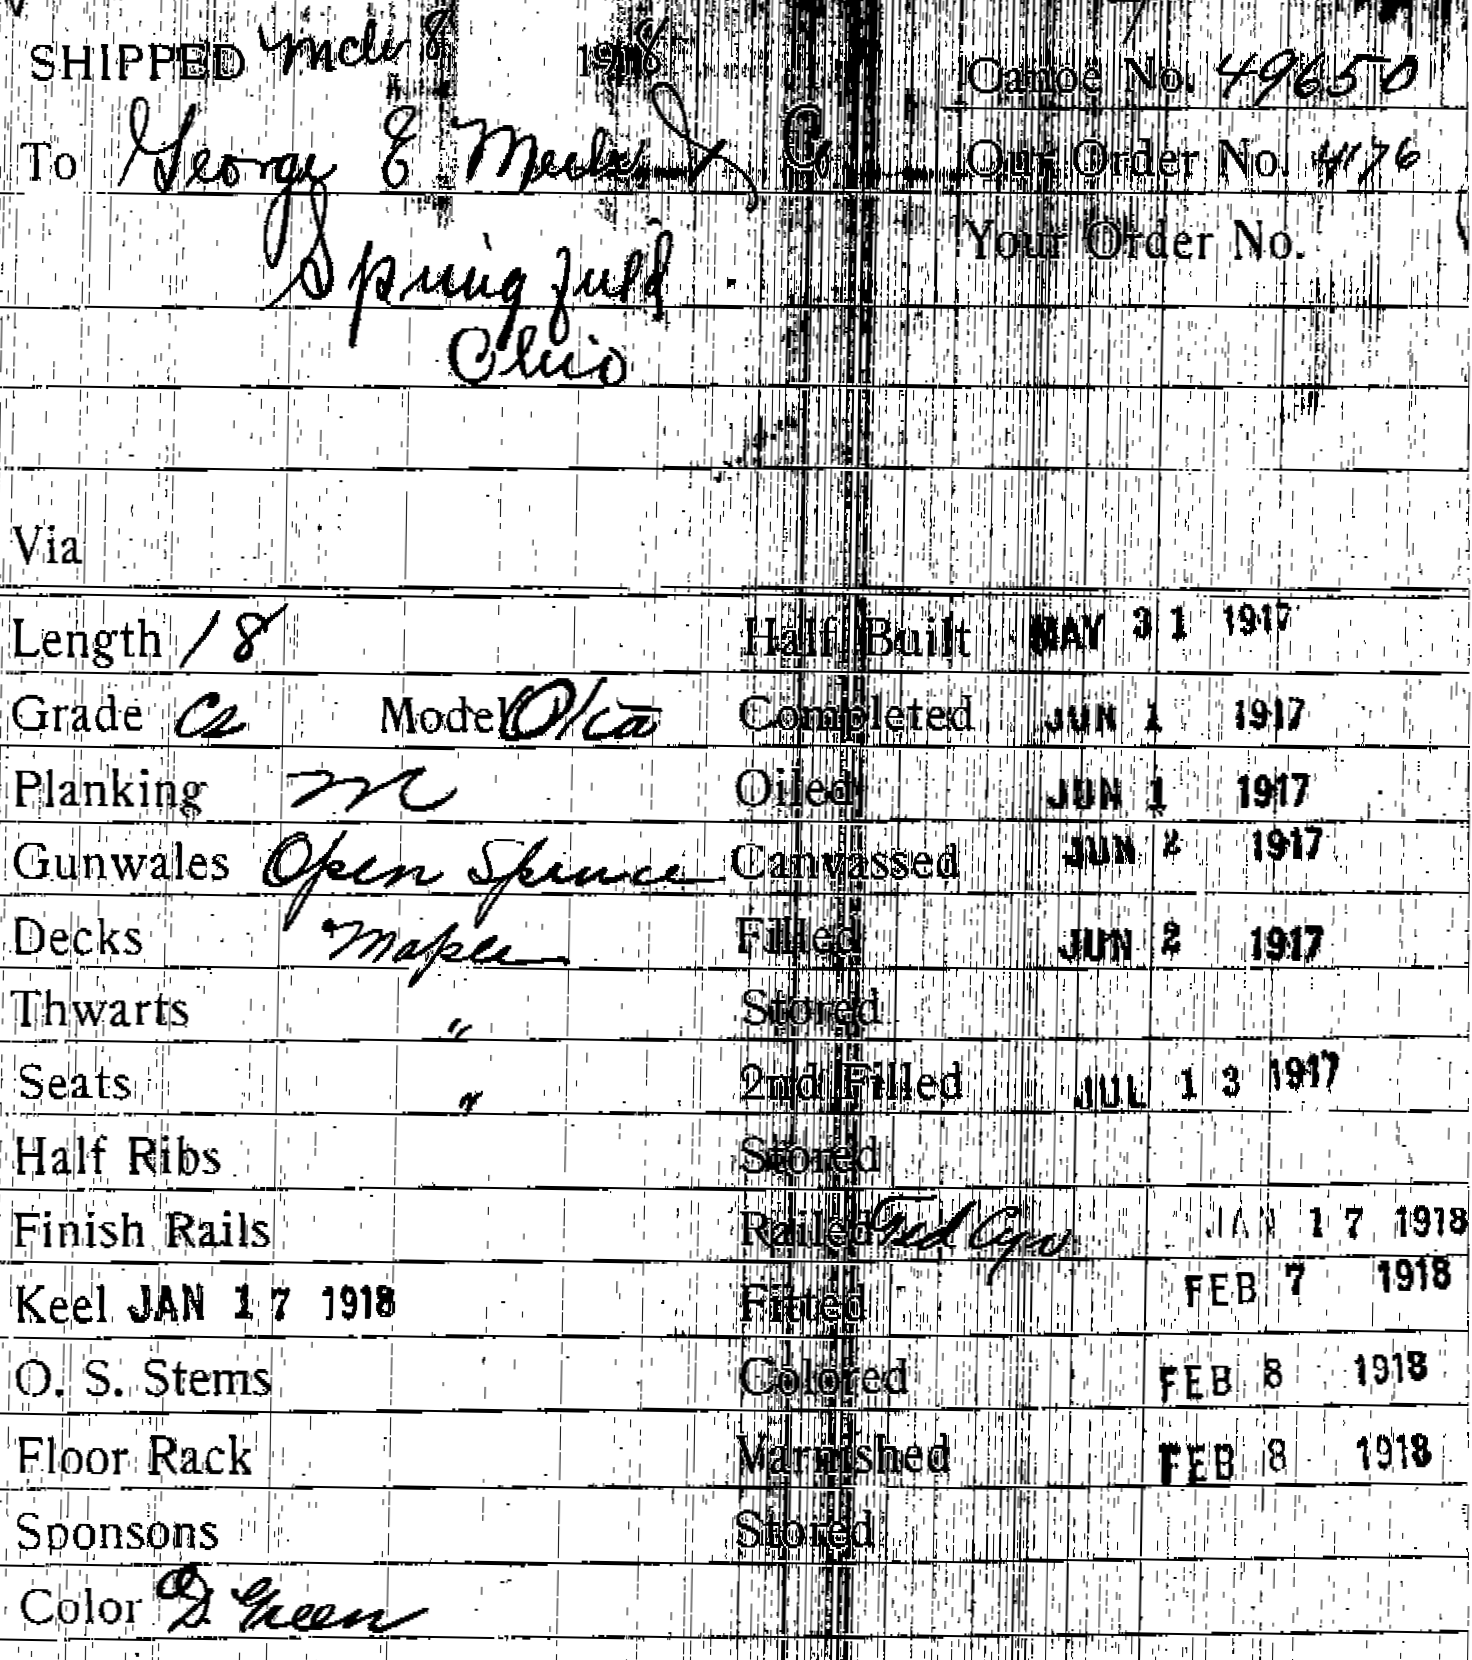 SHIPPED Mch 8 1918
Canoe No. 49650
To George E
Our Order No. 4176
Springfield
Your Order No.
Ohio
Via
Length 18 Half Built MAY 31 1917
Grade Cs Model Otca Completed JUN 1 1917
Planking Oiled JUN 1 1917
Gunwales Open Spruce Canvassed JUN 2 1917
Decks Maple Filled JUN 2 1917
Thwarts " Stored
Seats " 2nd Filled JUL 13 1917
Half Ribs Stored
Finish Rails Railed JAN 17 1918
Keel JAN 17 1918 Fitted FEB 7 1918
O. S. Stems Colored FEB 8 1918
Floor Rack Varnished FEB 8 1918
Sponsons Stored
Color D Green